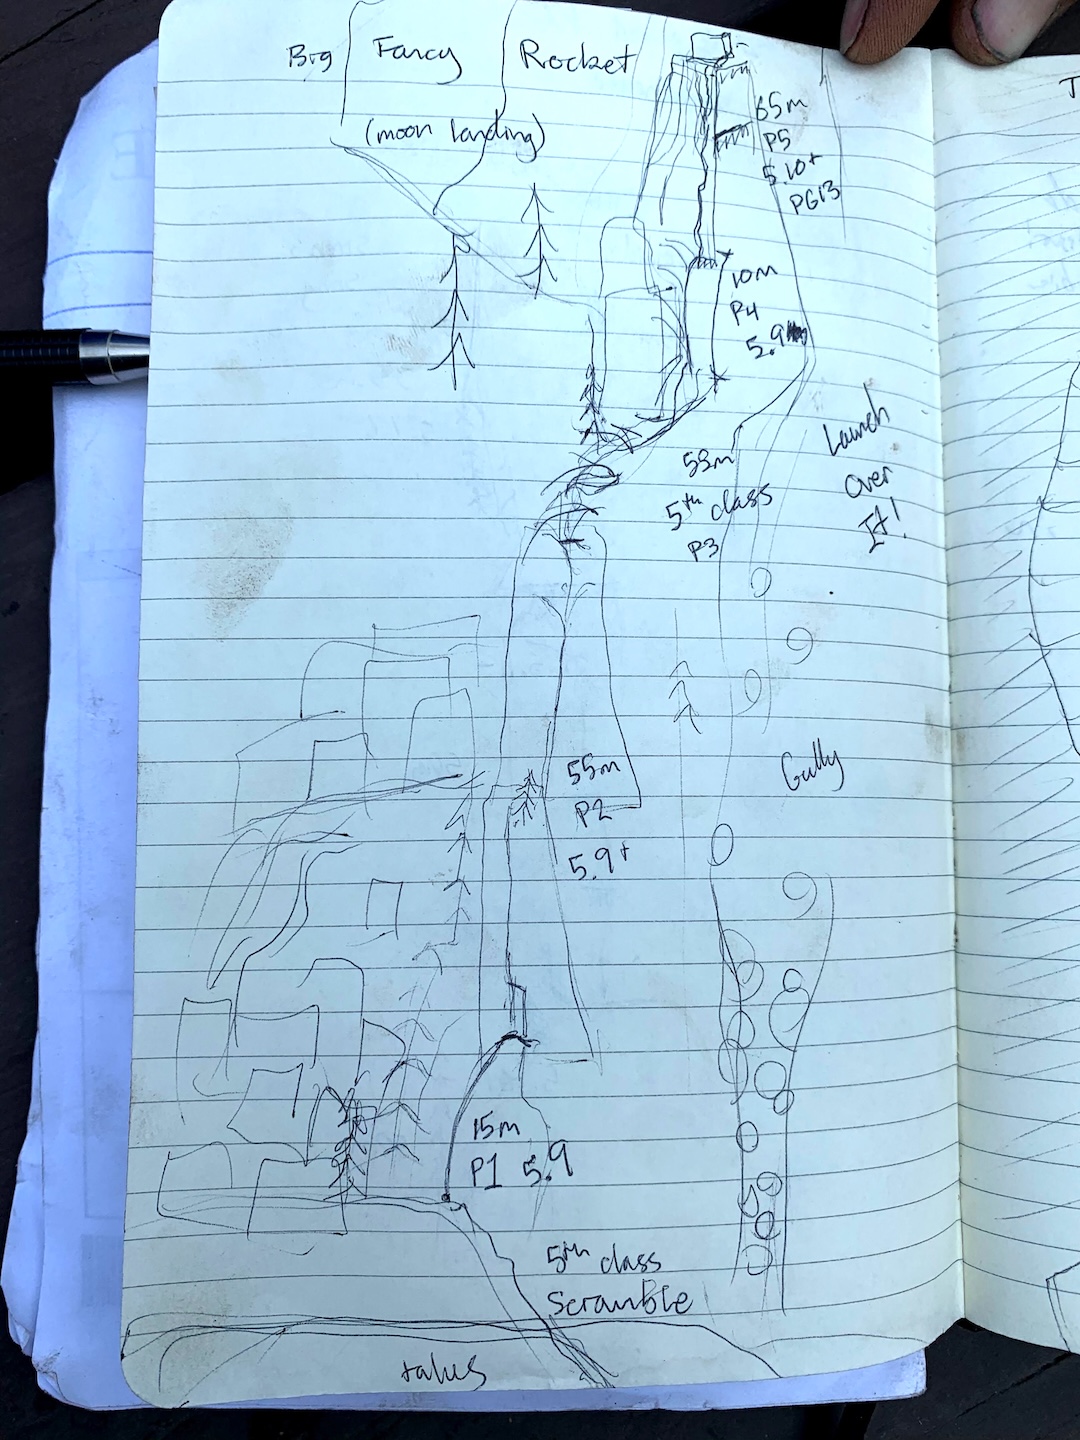 Big Fancy Rocket
(moon landing)
65m
P5
5.10+
PG13
10m
P4
5.9
Launch
over
It!
53m
5th class
P3
Gully
55m
P2
5.9+
15m
P1 5.9
5th class
Scramble
talus